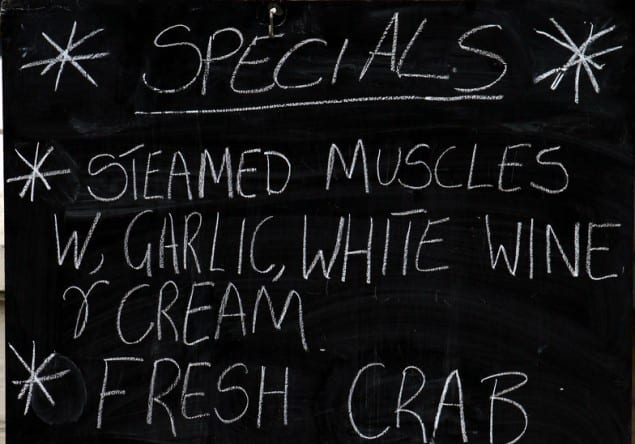 SPECIALS
* STEAMED MUSCLES
W, GARLIC, WHITE WINE
& CREAM
* FRESH CRAB